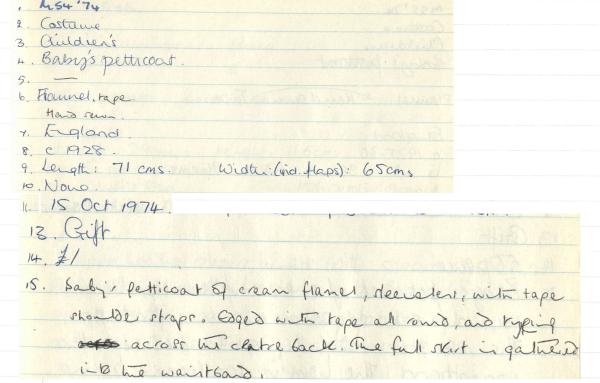 1. M54 '74
2. Costume
3. Children's
4. Baby's petticoat.
5. —
6. Flannel, tape
Hand sewn.
7. England.
8. c 1928.
9. Length: 71 cms. Width: (incl. flaps): 65cms
10. None.
11. 15 Oct 1974.
13. Gift
14. £1
15. Baby's petticoat of cream flannel, sleeveless, with tape
shoulder straps. Edged with tape all round, and tying
across the centre back. The full skirt is gathered
into the waistband.